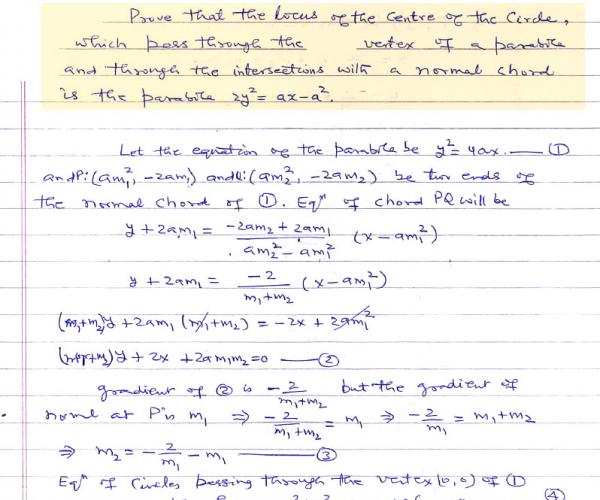 Prove that the Locus of the Centre of the Circle,
which pass through the vertex of a parabola
and through the intersections with a normal chord
is the parabola 2y² = ax - a².
Let the equation of the parabola be y² = 4ax. — ①
and P:(am₁², -2am₁) and Q:(am₂², -2am₂) be two ends of
the normal chord of ①. Eqⁿ of chord PQ will be
y + 2am₁ = (-2am₂ + 2am₁)/(am₂² - am₁²) (x - am₁²)
y + 2am₁ = -2/(m₁+m₂) (x - am₁²)
(m₁+m₂)y + 2am₁(m₁+m₂) = -2x + 2am₁²
(m₁+m₂)y + 2x + 2am₁m₂ = 0 — ②
gradient of ② is -2/(m₁+m₂) but the gradient of
norml at P is m₁ ⇒ -2/(m₁+m₂) = m₁ ⇒ -2/m₁ = m₁+m₂
⇒ m₂ = -2/m₁ - m₁ — ③
Eqⁿ of Circles passing through the vertex (0,0) of ①
④